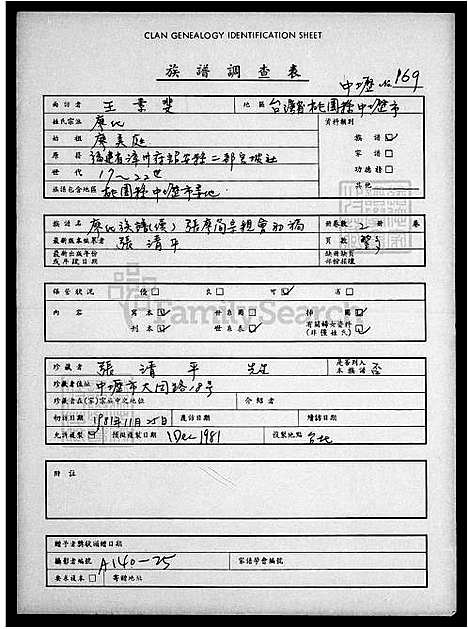 CLAN GENEALOGY IDENTIFICATION SHEET
族譜調查表
中壢 No. 169
面訪者 王業斐 地區 台灣省桃園縣中壢市
姓氏宗派 廖氏 資料類別
始祖 廖美庭 族譜
原籍 福建省漳州府詔安縣二都官坡社 家譜
世代 17~22世 功德榜
族譜包含地區 桃園縣中壢市等地 其他
族譜名 廖氏族譜(續)張廖簡宗親會初稿 冊卷數 2 冊 卷
最新版本編纂者 張清平 頁數
最新出版年份或年度日期 缺冊缺頁部份採讀
保管狀況 優 良 可 劣
內容 寫本 世系圖 插圖
刊本 世系表 有關婦女資料(非僅姓氏)
珍藏者 張清平 先生 是否列入本族譜 否
珍藏者住址 中壢市大同路18号
珍藏者在(家)宗族中之地位 介紹者
初訪日期 1981年11月25日 覆訪日期 續訪日期
允許複製 預擬複製日期 1 Dec 1981 複製地點 台北
附註
贈予者獎狀頒贈日期
攝影者編號 A140-25 家譜學會編號
要求複本 寄贈地址
FamilySearch